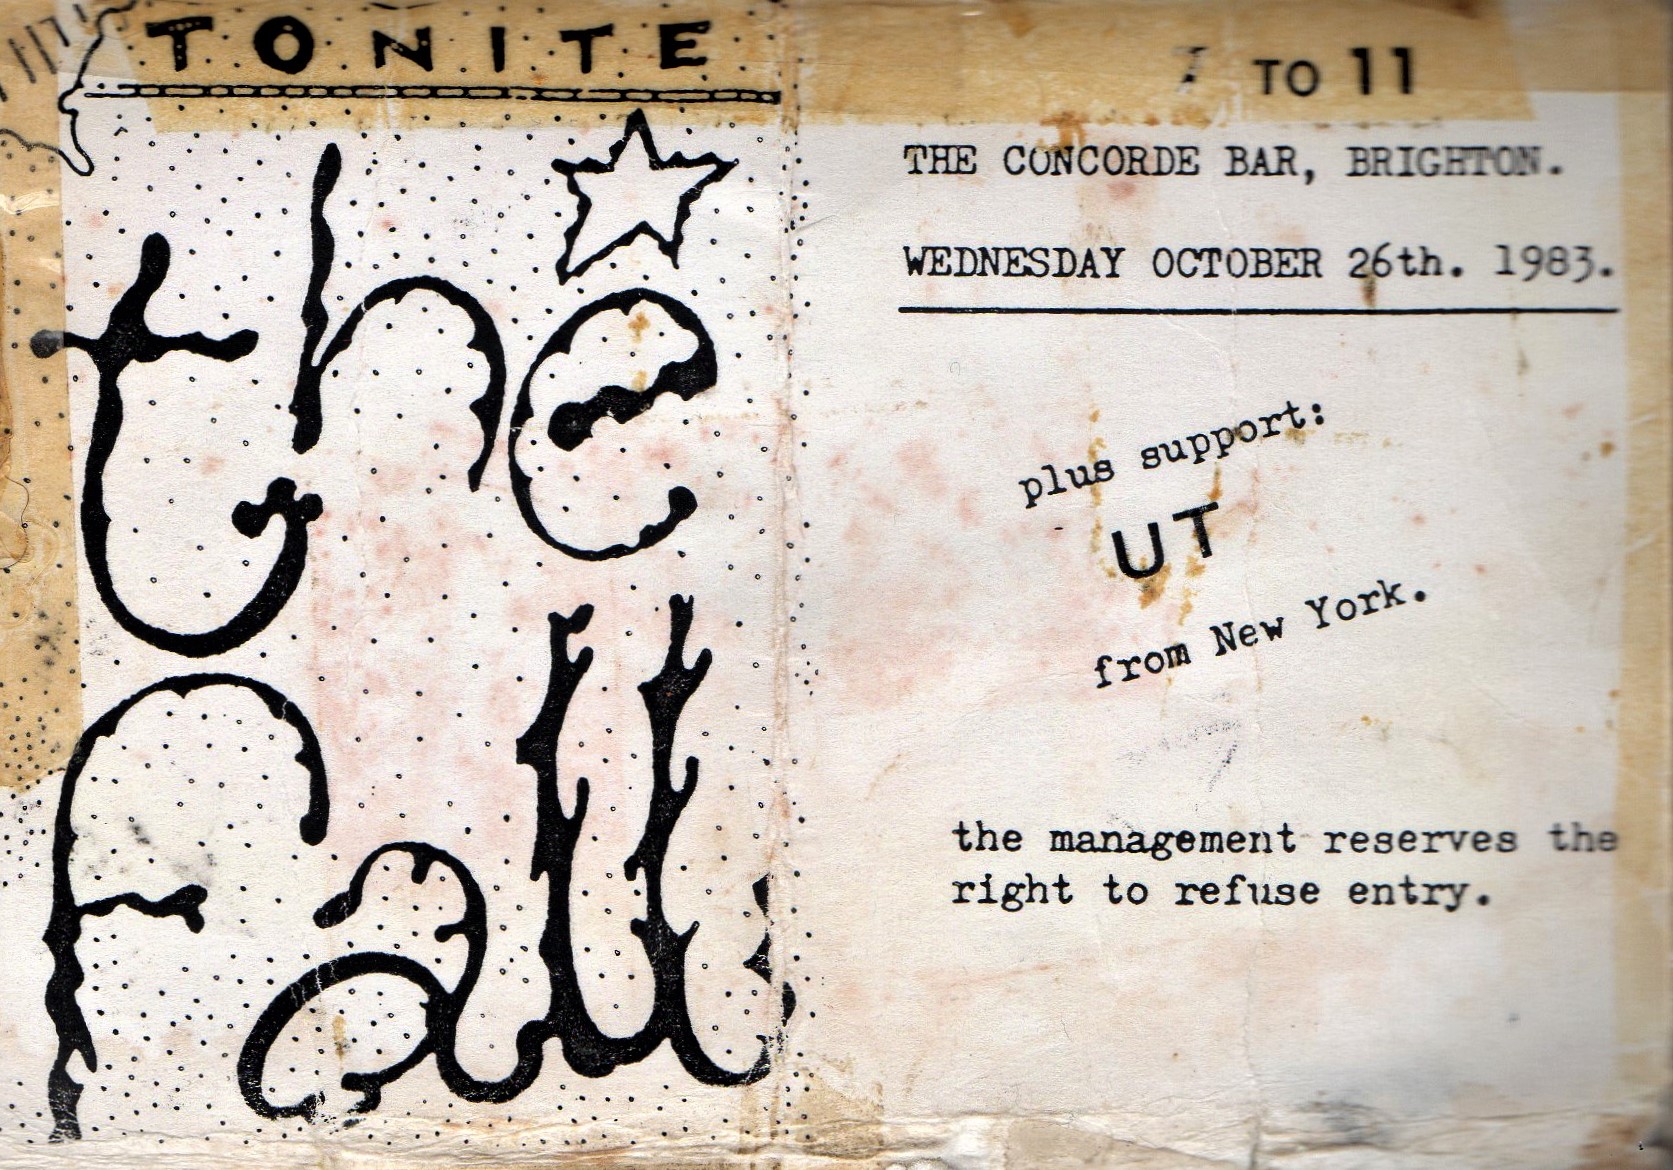 TONITE
the
Fall
7 TO 11
THE CONCORDE BAR, BRIGHTON.
WEDNESDAY OCTOBER 26th. 1983.
plus support:
UT
from New York.
the management reserves the
right to refuse entry.